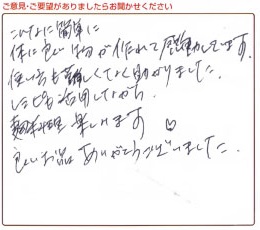 ご意見・ご要望がありましたらお聞かせください
こんなに簡単に
体に良い物が作れて感動してます.
使い方も難しくなく助かりました.
レシピも活用しながら.
料理 楽しいです ♡
良いお品 ありがとうございました.